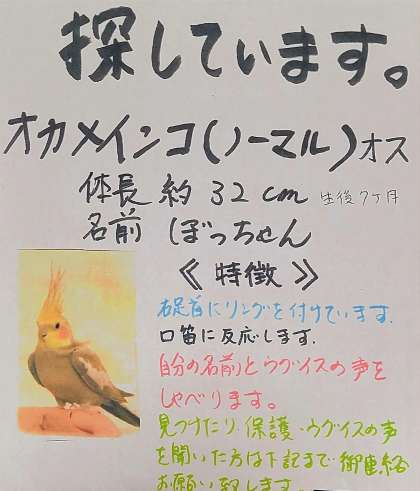 探しています。
オカメインコ(ノーマル)オス
体長 約 32cm 生後7ヶ月
名前 ぼっちゃん
《特徴》
右足首にリングを付けています。
口笛に反応します。
自分の名前とウグイスの声を
しゃべります。
見つけたり、保護・ウグイスの声
を聞いた方は下記まで御連絡
お願い致します。